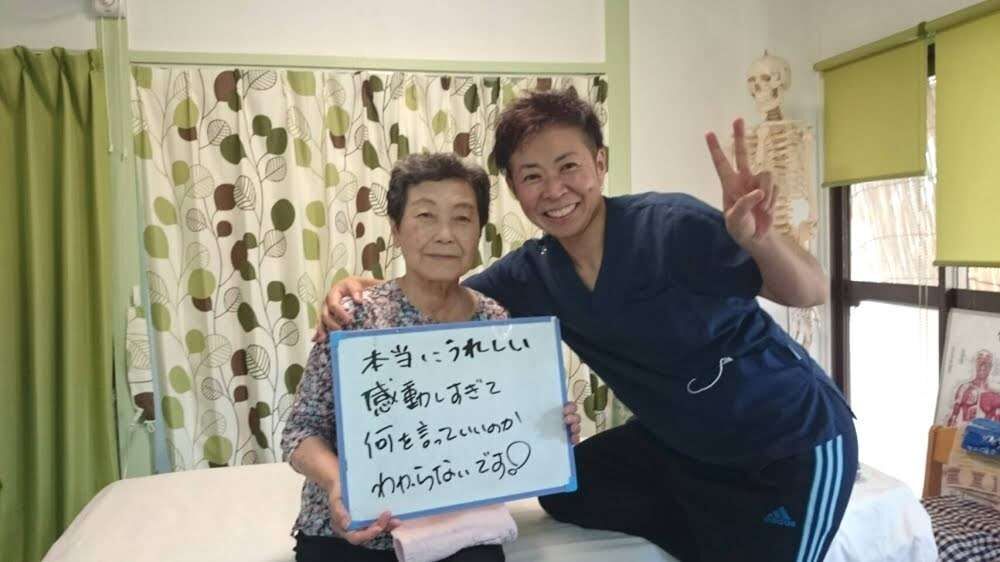 本当にうれしい
感動しすぎて
何を言っていいのか
わからないです。
adidas